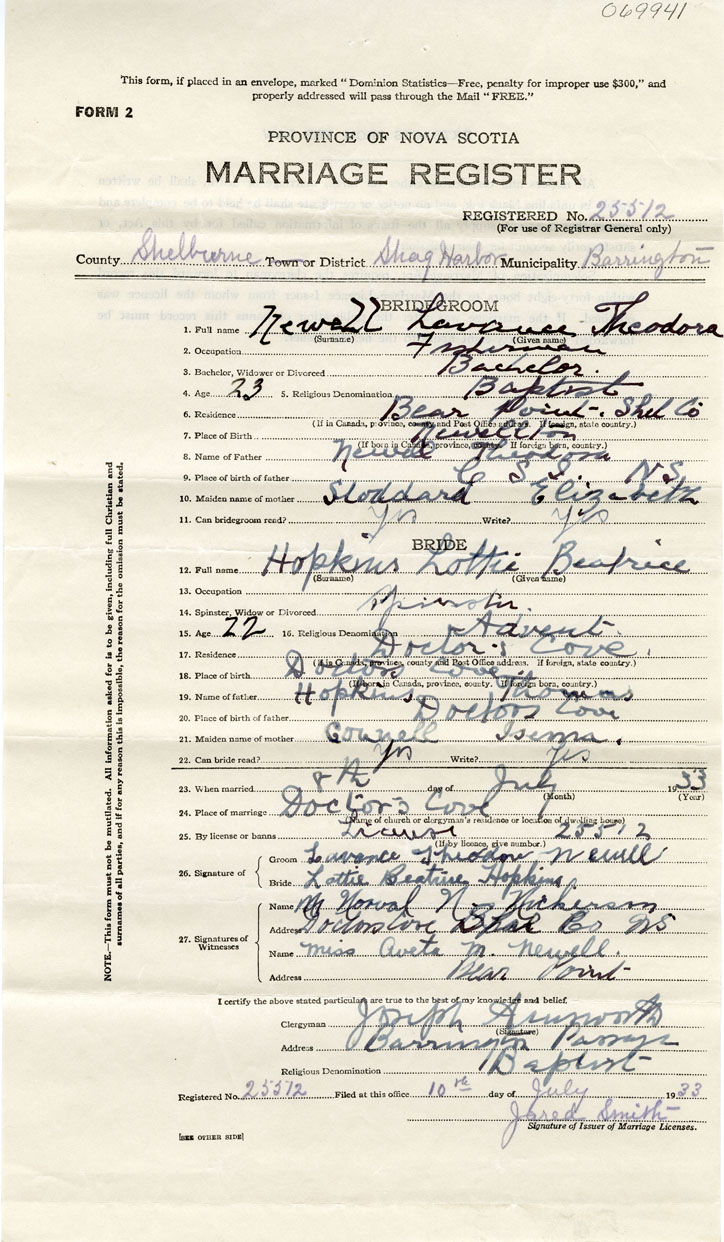 069941
This form, if placed in an envelope, marked "Dominion Statistics—Free, penalty for improper use $300," and
properly addressed will pass through the Mail "FREE."
FORM 2
PROVINCE OF NOVA SCOTIA
MARRIAGE REGISTER
REGISTERED No. 25512
(For use of Registrar General only)
County Shelburne Town or District Shag Harbor Municipality Barrington
BRIDEGROOM
1. Full name Newell Lavance Theodora
(Surname) (Given name)
2. Occupation Fisherman
3. Bachelor, Widower or Divorced Bachelor.
4. Age 23 5. Religious Denomination Baptist
6. Residence Bear Point. Shel Co
(If in Canada, province, county and Post Office address. If foreign, state country.)
7. Place of Birth Newellton
(If born in Canada, province, county. If foreign born, country.)
8. Name of Father Newell Theodora
9. Place of birth of father C S I. N S
10. Maiden name of mother Stoddard Elizabeth
11. Can bridegroom read? Yes Write? Yes
BRIDE
12. Full name Hopkins Lottie Beatrice
(Surname) (Given name)
13. Occupation
14. Spinster, Widow or Divorced Spinster.
15. Age 22 16. Religious Denomination Advent.
17. Residence Doctor's Cove.
(If in Canada, province, county and Post Office address. If foreign, state country.)
18. Place of birth Doctors Cove
(If born in Canada, province, county. If foreign born, country.)
19. Name of father Hopkins Thomas
20. Place of birth of father Doctors Cove
21. Maiden name of mother
22. Can bride read? Yes Write? Yes
23. When married 8th day of July 1933
(Month) (Year)
24. Place of marriage Doctor's Cove
(Name of church or clergyman's residence or location of dwelling house)
25. By license or banns License 25512
(If by licence, give number.)
26. Signature of
Groom Lavance Theodore Newell
Bride Lottie Beatrice Hopkins.
27. Signatures of Witnesses
Name Mr Norval N. Nickerson
Address Doctors Cove Shel Co NS
Name Miss Aveta M. Newell.
Address Bear Point
NOTE.—This form must not be mutilated. All information asked for is to be given, including full Christian and
surnames of all parties, and if for any reason this is impossible, the reason for the omission must be stated.
I certify the above stated particulars are true to the best of my knowledge and belief.
Clergyman Joseph
(Signature)
Address Barrington Passage
Religious Denomination Baptist
Registered No. 25512 Filed at this office 10th day of July 1933
Jared Smith
Signature of Issuer of Marriage Licenses.
[SEE OTHER SIDE]